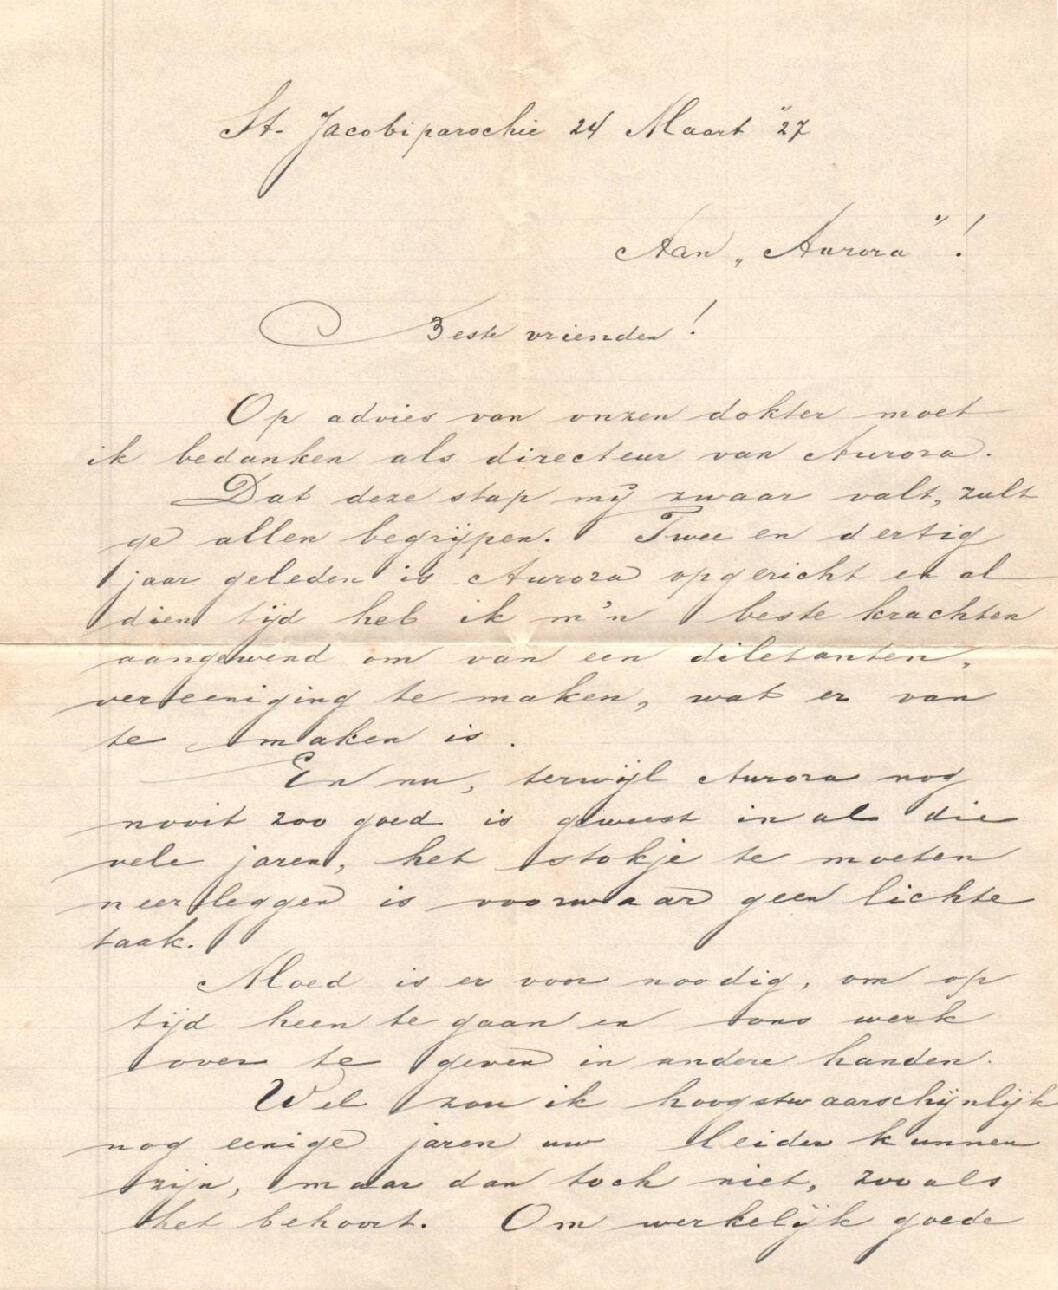 St. Jacobiparochie 24 Maart "27
Aan „Aurora"!
Beste vrienden!
Op advies van onzen dokter moet
ik bedanken als directeur van Aurora.
Dat deze stap mij zwaar valt, zult
ge allen begrijpen. Twee en dertig
jaar geleden is Aurora opgericht en al
dien tijd heb ik m'n beste krachten
aangewend om van een diletanten,
vereeniging te maken, wat er van
te maken is.
En nu, terwijl Aurora nog
nooit zoo goed is geweest in al die
vele jaren, het stokje te moeten
neerleggen is voorwaar geen lichte
taak.
Moed is er voor noodig, om op
tijd heen te gaan en ons werk
over te geven in andere handen.
Wel zou ik hoogstwaarschijnlijk
nog eenige jaren uw leider kunnen
zijn, maar dan toch niet, zooals
het behoort. Om werkelijk goede